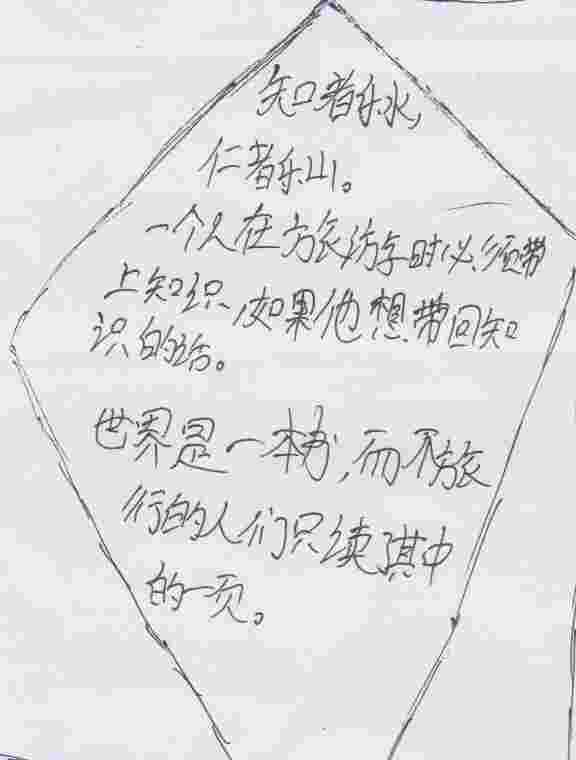 知者乐水,
仁者乐山。
一个人在旅游时必须带
上知识,如果他想带回知
识的话。
世界是一本书,而不旅
行的人们只读其中
的一页。